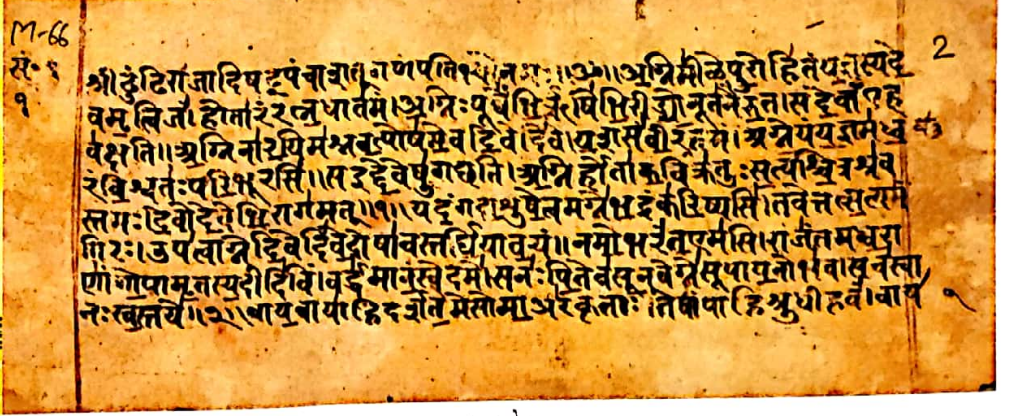 M-66
2
सं॰ १
१
श्री ढुंढिराजादिषट्पंचाशत् गणपतिभ्यो नमः ॥ॐ॥ अग्निमीळे पुरोहितं यज्ञस्य दे
वमृत्विजं। होतारं रत्नधातमं। अग्निः पूर्वेभिर्ऋषिभिरीड्यो नूतनैरुत। स देवाँ एह
वक्षति॥ अग्निना रयिमश्नवत्पोषमेव दिवेदिवे। यशसं वीरवत्तमं। अग्ने यं यज्ञमध्व
रं विश्वतः परिभूरसि॥ स इद्देवेषु गच्छति। अग्निर्होता कविक्रतुः सत्यश्चित्रश्रव
स्तमः। देवो देवेभिरागमत्॥१॥ यदंग दाशुषे त्वमग्ने भद्रं करिष्यसि। तवेत्तत्सत्यमं
गिरः। उप त्वाग्ने दिवेदिवे दोषावस्तर्धिया वयं॥ नमो भरंत एमसि। राजंतमध्वरा
णां गोपामृतस्य दीदिविं। वर्द्धमानं स्वे दमे। स नः पितेव सूनवेग्ने सूपायनो भव। सचस्वा
नः स्वस्तये॥२॥ वायवायाहि दर्शतेमे सोमा अरंकृताः। तेषां पाहि श्रुधी हवं। वाय